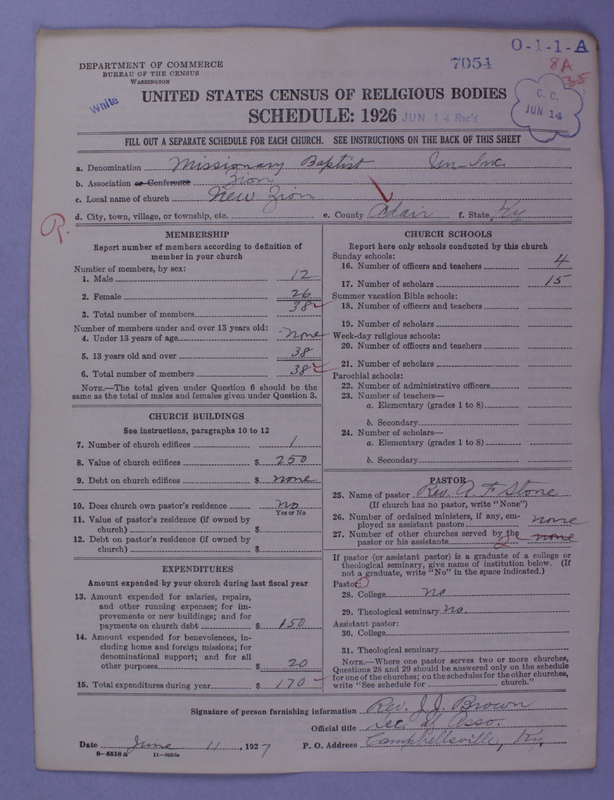 DEPARTMENT OF COMMERCE
BUREAU OF THE CENSUS
WASHINGTON
7054
O-1-1-A
8A
38
White
UNITED STATES CENSUS OF RELIGIOUS BODIES
SCHEDULE: 1926
JUN 14 Rec'd
C. C.
JUN 14
FILL OUT A SEPARATE SCHEDULE FOR EACH CHURCH. SEE INSTRUCTIONS ON THE BACK OF THIS SHEET
a. Denomination Missionary Baptist Un-Inc.
b. Association or Conference Zion
c. Local name of church New Zion
d. City, town, village, or township, etc. e. County Adair f. State, Ky
R.
MEMBERSHIP
Report number of members according to definition of
member in your church
Number of members, by sex:
1. Male 12
2. Female 26
3. Total number of members 38
Number of members under and over 13 years old:
4. Under 13 years of age none
5. 13 years old and over 38
6. Total number of members 38
NOTE.—The total given under Question 6 should be the
same as the total of males and females given under Question 3.
CHURCH BUILDINGS
See instructions, paragraphs 10 to 12
7. Number of church edifices 1
8. Value of church edifices $ 250
9. Debt on church edifices $ none
10. Does church own pastor's residence no
Yes or No
11. Value of pastor's residence (if owned by
church) $
12. Debt on pastor's residence (if owned by
church) $
EXPENDITURES
Amount expended by your church during last fiscal year
13. Amount expended for salaries, repairs,
and other running expenses; for im-
provements or new buildings; and for
payments on church debt $ 150
14. Amount expended for benevolences, in-
cluding home and foreign missions; for
denominational support; and for all
other purposes $ 20
15. Total expenditures during year $ 170
CHURCH SCHOOLS
Report here only schools conducted by this church
Sunday schools:
16. Number of officers and teachers 4
17. Number of scholars 15
Summer vacation Bible schools:
18. Number of officers and teachers
19. Number of scholars
Week-day religious schools:
20. Number of officers and teachers
21. Number of scholars
Parochial schools:
22. Number of administrative officers
23. Number of teachers—
a. Elementary (grades 1 to 8)
b. Secondary
24. Number of scholars—
a. Elementary (grades 1 to 8)
b. Secondary
PASTOR
25. Name of pastor Rev. A. F Stone
(If church has no pastor, write "None")
26. Number of ordained ministers, if any, em-
ployed as assistant pastors none
27. Number of other churches served by the
pastor or his assistants none
If pastor (or assistant pastor) is a graduate of a college or
theological seminary, give name of institution below. (If
not a graduate, write "No" in the space indicated.)
Pastor:
28. College no
29. Theological seminary no
Assistant pastor:
30. College
31. Theological seminary
NOTE.—Where one pastor serves two or more churches,
Questions 28 and 29 should be answered only on the schedule
for one of the churches; on the schedules for the other churches,
write "See schedule for church."
Signature of person furnishing information Rev. J.J. Brown
Official title Sec. Asso.
Date June 11, 1927 P. O. Address Campbellsville, Ky,
8-5518 a 11-9064a